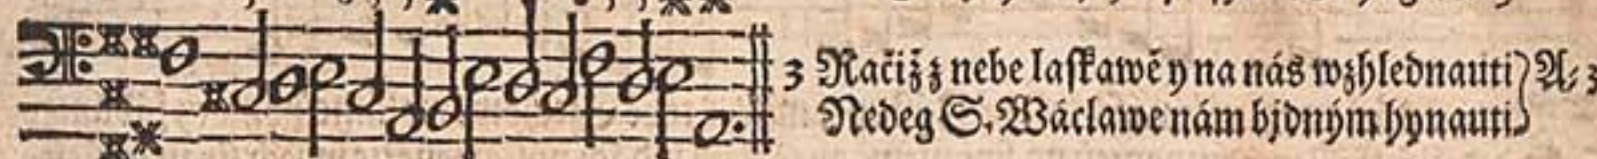 3 Načiž z nebe laſkawě y na nás wzhlednauti) A: 3
Nedeg S. Wáclawe nám bjdným hynauti)